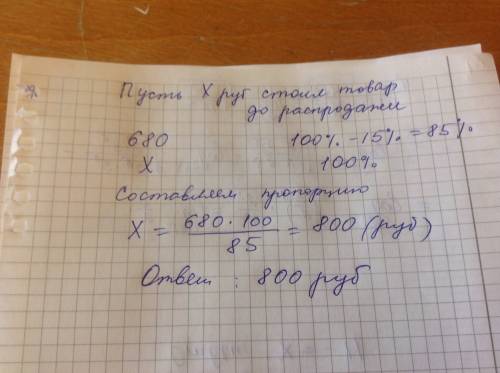 Пусть X руб стоил товар
до распродажи
680 100% - 15% = 85%
X 100%
Составляем пропорцию
X = 680 · 100 / 85 = 800 (руб)
Ответ : 800 руб